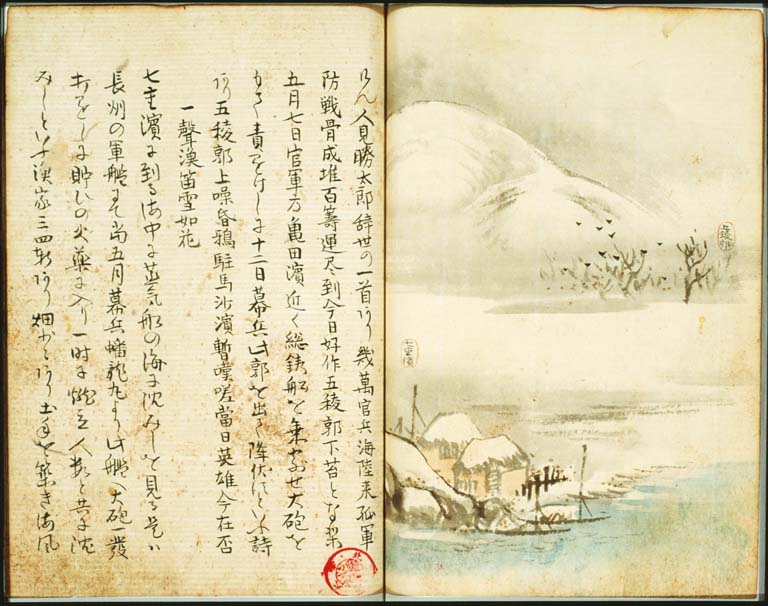 五稜郭
七重濱
人見勝太郎辞世の一首あり 幾萬官兵海陸来孤軍
防戦骨成堆百籌運尽到今日好作五稜郭下苔となる
五月七日官軍方亀田濱近く総銕船を乗よせ大砲を
責かけしに十二日幕兵此郭を出て降伏すといふ詩
あり五稜郭上噪昏鴉駐馬沙濱暫嘆嗟當日英雄今在否
一聲漢笛雪如花
七重濱に到る海中に蒸気船の海に沈みしを見る是ハ
長州の軍艦にて当五月幕兵幡龍丸より此艦へ大砲一發
貯ひの火薬に入り一時に燃立人数と共に沈
みしといふ漁家三四軒あり畑少々あり土手を築き海風